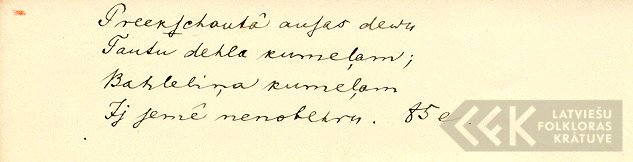 Preekſchautâ ausas dewu
Tautu dehla kumeļam;
Bahleliņa kumeļam
Ij jemê nenobehru. 85e
LATVIEŠU
FOLKLORAS
KRĀTUVE